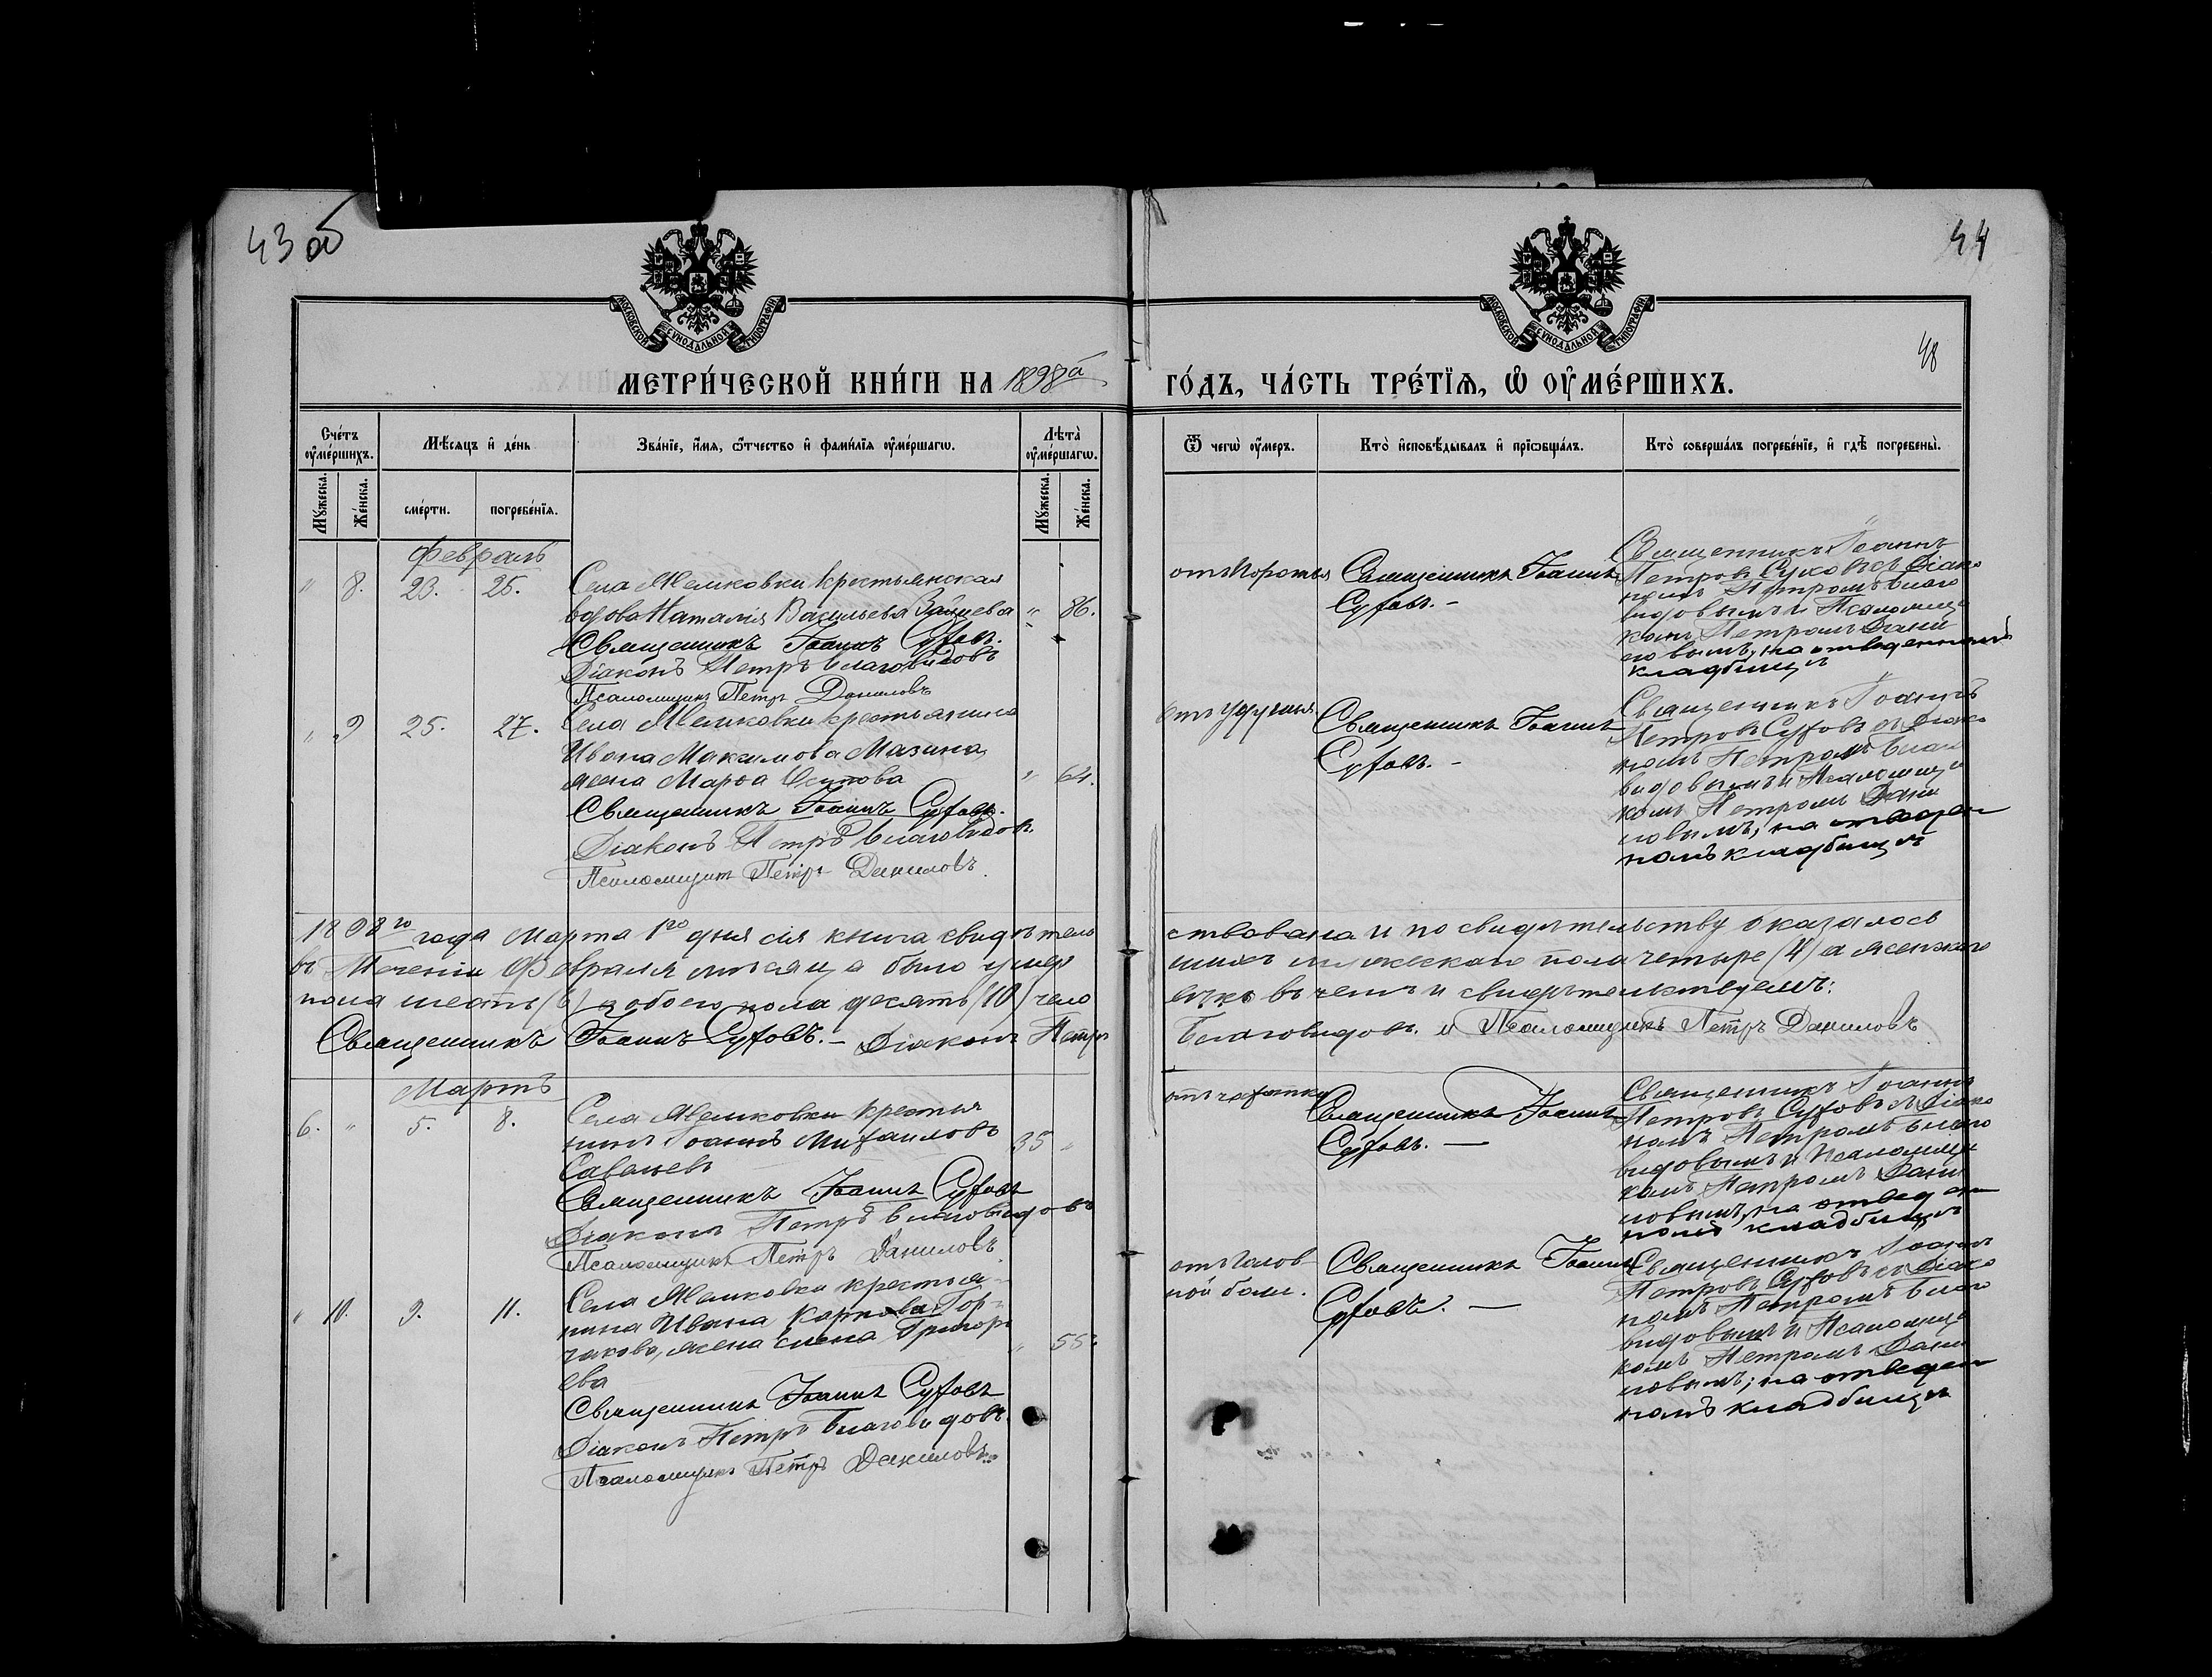 43 об
44
48
МОСКОВСКОЙ СѴНОДАЛЬНОЙ ТИПОГРАФІИ
МОСКОВСКОЙ СѴНОДАЛЬНОЙ ТИПОГРАФІИ
МЕТРИ́ЧЕСКОЙ КНИ́ГИ НА 1898й
ГО́ДЪ, ЧА́СТЬ ТРЕ́ТЇѦ, Ѡ҆ ОУ҆МЕ́РШИХЪ.
Сче́тъ оу҆ме́ршихъ.
Мѣ́сѧцъ и҆ де́нь
Зва́нїе, и҆́мѧ, ѻ҆́тчество и҆ фами́лїѧ оу҆ме́ршагѡ.
Лѣ́та оу҆ме́ршагѡ.
Мꙋ́жеска.
Же́нска.
сме́рти.
погребе́нїѧ.
Мꙋ́жеска.
Же́нска.
Ѿ чегѡ̀ оу҆́меръ.
Кто̀ и҆сповѣ́дывалъ и҆ прїѡбща́лъ.
Кто̀ соверша́лъ погребе́нїе, и҆ гдѣ̀ погребены̀.
Февраль
" 8. 23. 25. Села Меликовки крестьянская
вдова Наталія Васильева Зайцева " 86.
Священникъ Іоаннъ Суховъ.
Діаконъ Петръ Благовидовъ
Псаломщикъ Петръ Даниловъ
Священникъ Іоаннъ
Суховъ. –
Священникъ Іоаннъ
Петровъ Суховъ съ Діако
номъ Петромъ Благо
видовымъ и Псаломщи
комъ Петромъ Дани
ловымъ, на отведенномъ
кладбищѣ
" 9 25. 27. Села Меликовки крестьянина
Ивана Максимова Мазина,
жена Марѳа Осипова " 64.
Священникъ Іоаннъ Суховъ.
Діаконъ Петръ Благовидовъ.
Псаломщикъ Петръ Даниловъ.
отъ удушья
Священникъ Іоаннъ
Суховъ. –
Священникъ Іоаннъ
Петровъ Суховъ съ Діако
номъ Петромъ Благо
видовымъ и Псаломщи
комъ Петромъ Дани
ловымъ; на отведен
номъ кладбищѣ
1898го года Марта 1го дня сія книга свидѣтель
ствована и по свидѣтельству оказалось
въ теченіи Февраля мѣсяца было умер
шихъ мужескаго пола четыре (4) а женскаго
пола шесть (6) а обоего пола десять (10) чело
вѣкъ въ чемъ и свидѣтельствуемъ:
Священникъ Іоаннъ Суховъ. – Діаконъ Петръ
Благовидовъ. и Псаломщикъ Петръ Даниловъ
Мартъ
6. " 5. 8. Села Меликовки крестья
нинъ Іоаннъ Михаиловъ 35 "
Священникъ Іоаннъ Суховъ
Діаконъ Петръ Благовидовъ
Псаломщикъ Петръ Даниловъ
отъ чахотки
Священникъ Іоаннъ
Суховъ. –
Священникъ Іоаннъ
Петровъ Суховъ съ Діако
номъ Петромъ Благо
видовымъ и Псаломщи
комъ Петромъ Дани
ловымъ, на отведен
номъ кладбищѣ
" 10. 9. 11. Села Меликовки крестья
нина Ивана Карпова Гор-
чакова, жена Елена Григорь
ева " 55.
Священникъ Іоаннъ Суховъ
Діаконъ Петръ Благовидовъ.
Псаломщикъ Петръ Даниловъ.
отъ голов
ной боли.
Священникъ Іоаннъ
Суховъ. –
Священникъ Іоаннъ
Петровъ Суховъ съ Діако
номъ Петромъ Благо
видовымъ и Псаломщи
комъ Петромъ Дани
ловымъ; на отведен
номъ кладбищѣ